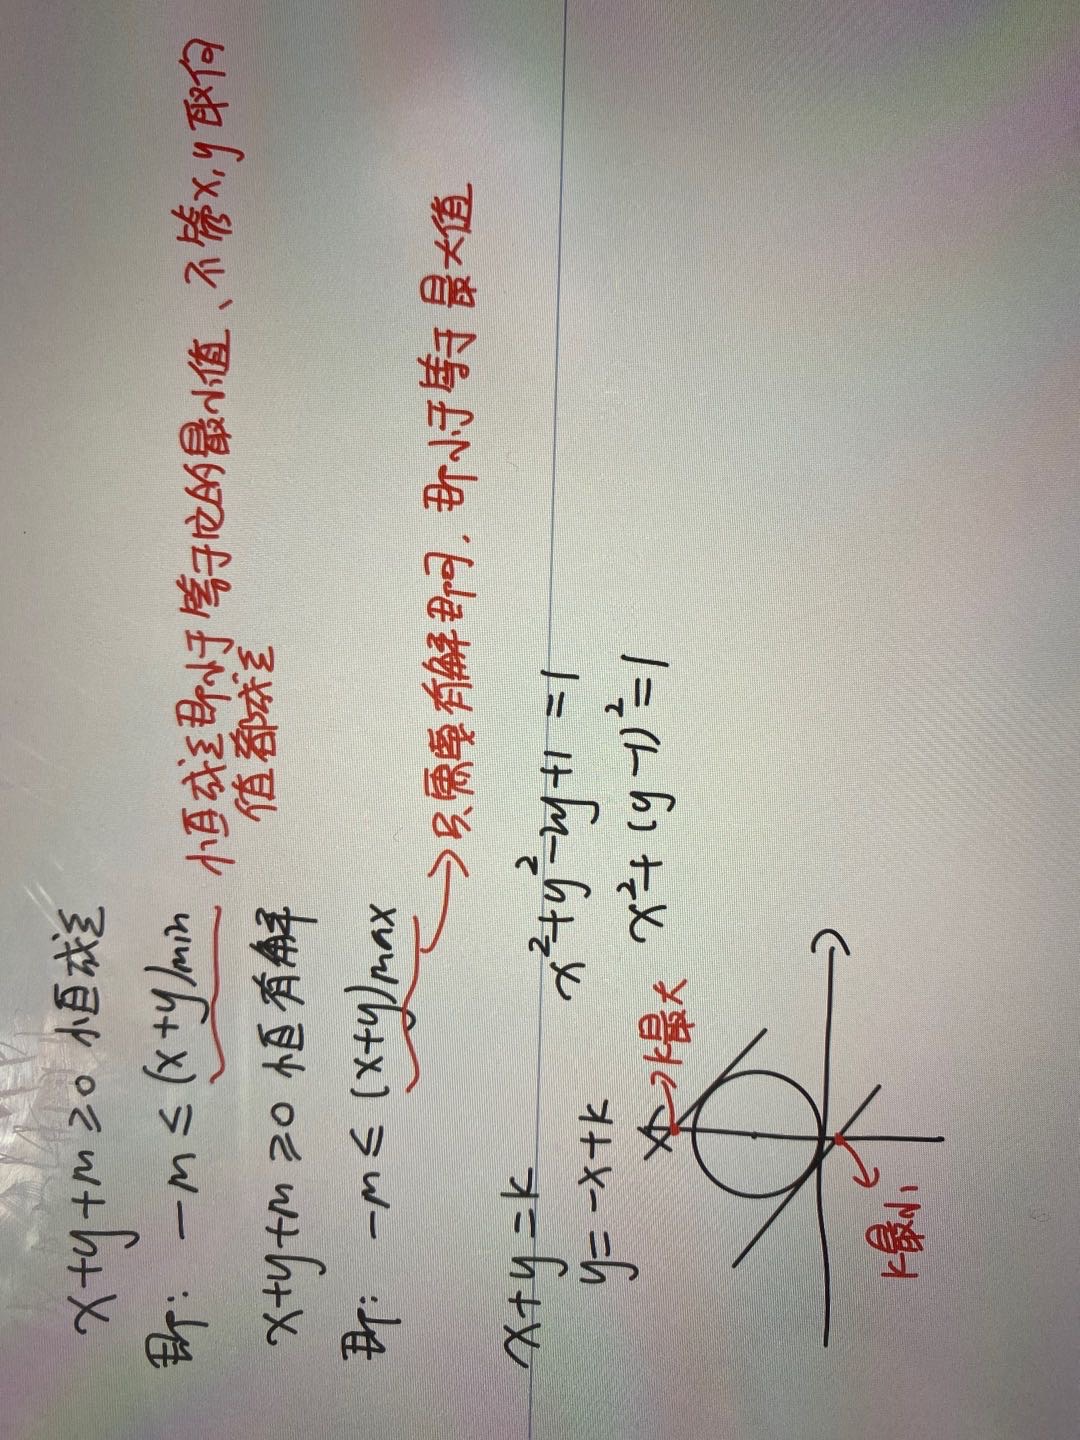 x+y+m≥0 恒成立
即: -m≤(x+y)min 恒成立即小于等于它的最小值、不管x,y取何
值都成立
x+y+m≥0 恒有解
即: -m≤(x+y)max → 只需要有解即可. 即小于等于最大值
x+y=k x²+y²-2y+1=1
y=-x+k x²+(y-1)²=1
k最大
k最小